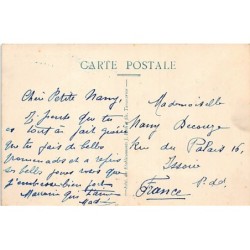 CARTE POSTALE
Chère Petite Nany,
J'espère que tu
es tout à fait guérie
que tu fais de belles
promenades et a repris
ses belles joues roses que
j'embrasse bien fort
Marraine qui t'aime
Mademoiselle
Nany Decouze
Rue du Palais 16
Issoire
P.d.D.
France